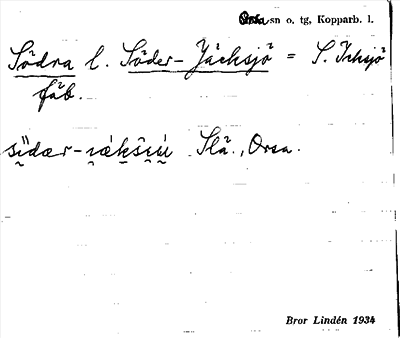 Orsa sn o. tg, Kopparb. l.
Södra l. Söder-Jäcksjö = S. Icksjö
fäb.
Slä., Orsa.
Bror Lindén 1934